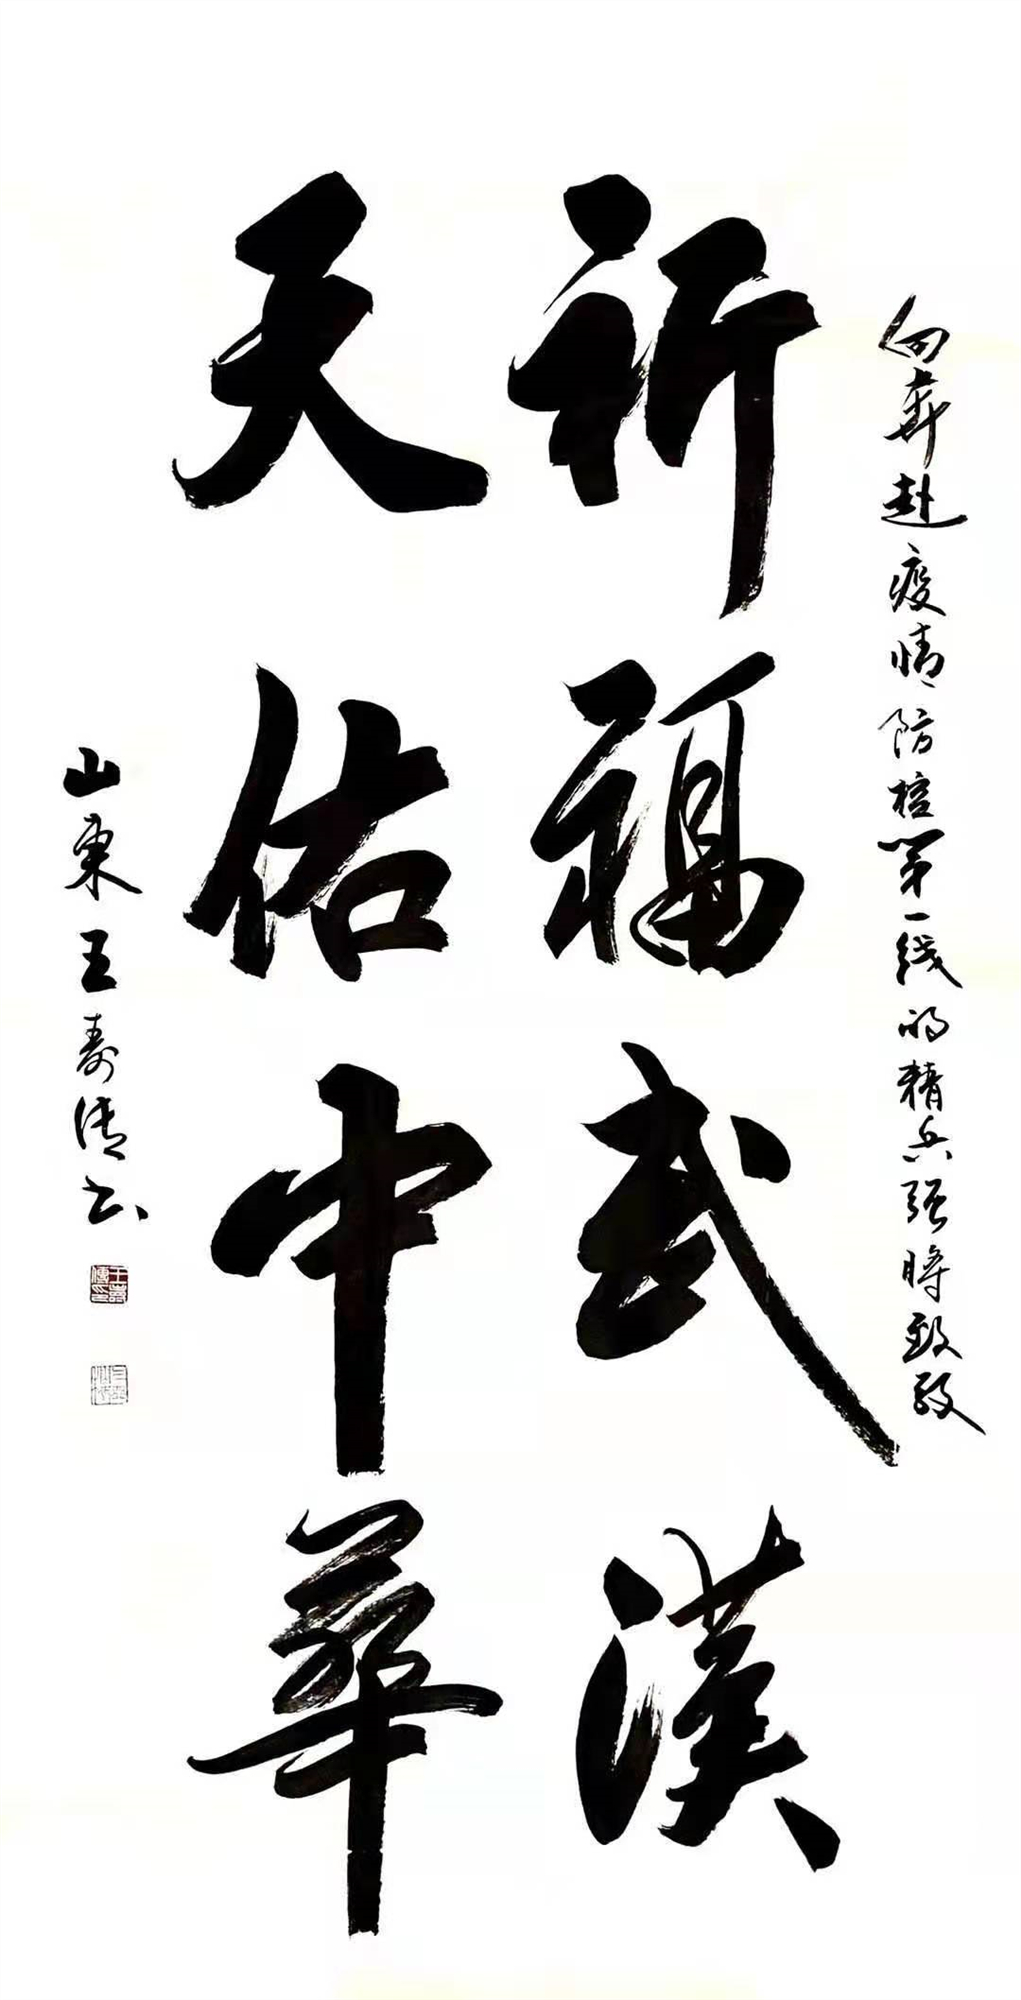 向奔赴疫情防控第一线的精兵强将致敬
祈福武漢
天佑中華
山東王壽清书